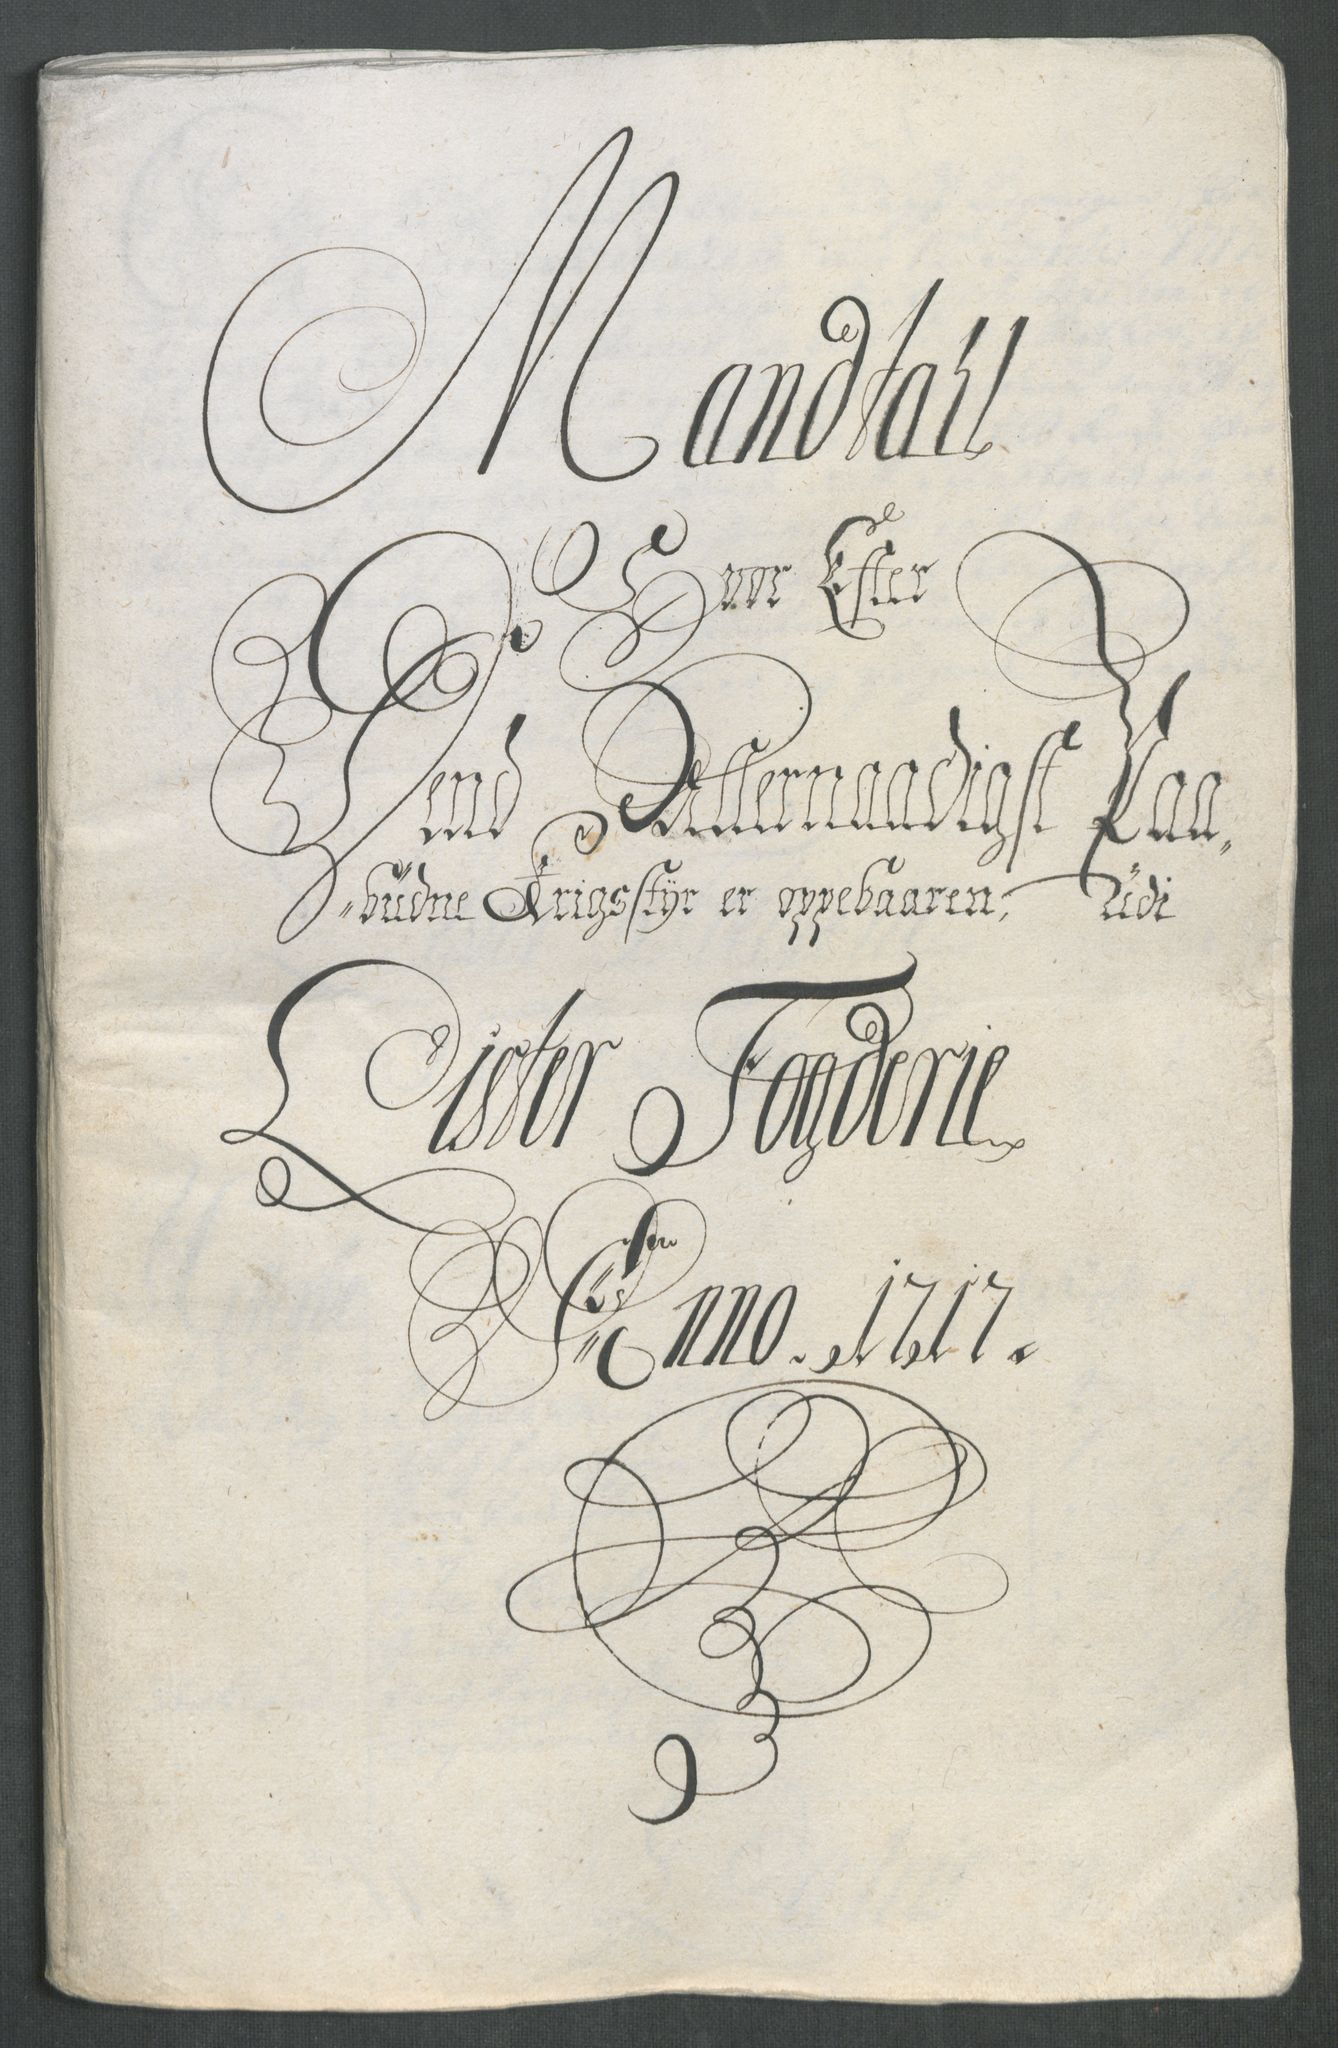 Mandtall
Hvor Efter
Dend Allernaadigst Paa„
„büdne Krigsstÿr er oppebaaren, Üdi
Lister Fogderie
Anno. 1717.